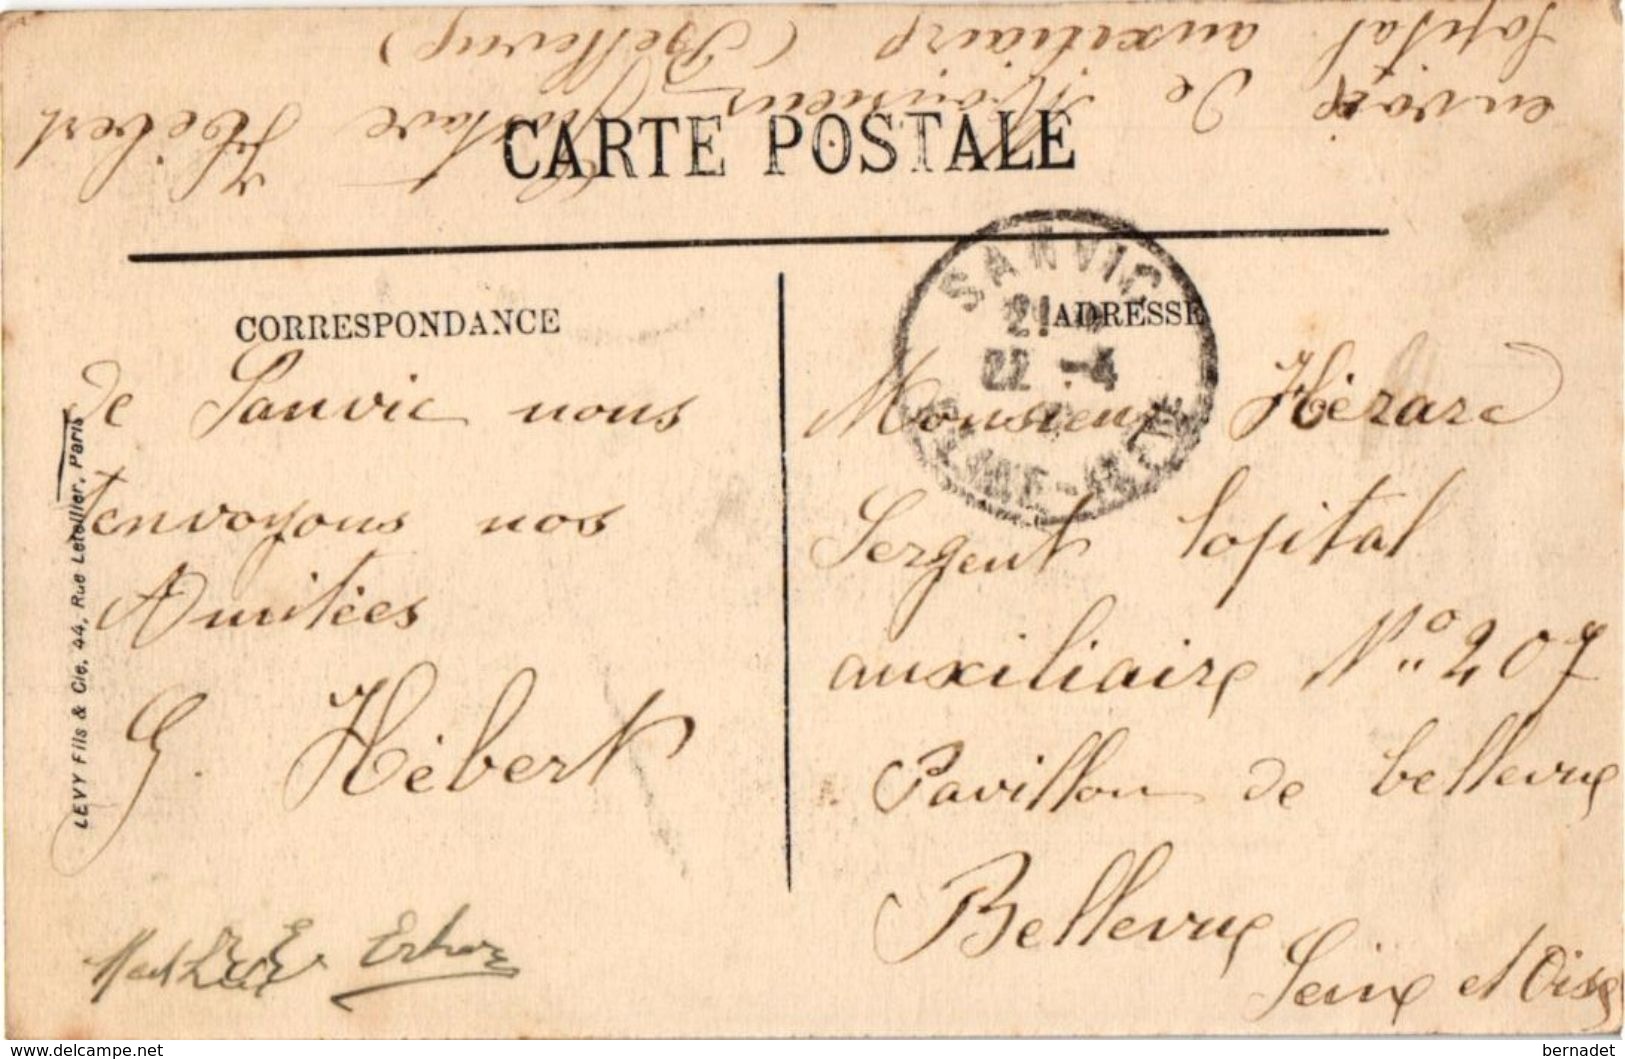 envoie de Monsieur Gustave Hébert
hopital auxiliaire (Bellevue)
CARTE POSTALE
CORRESPONDANCE
ADRESSE
SANVIC
21
22 -4
de Sanvic nous
t'envoyons nos
Amitées
G. Hébert
Monsieur Hérard
Sergent hopital
auxiliaire No 207
Pavillon de bellevue
Bellevue
Seine et Oise
LEVY Fils & Cie, 44, Rue Letellier, Paris
delcampe.net
bernadet